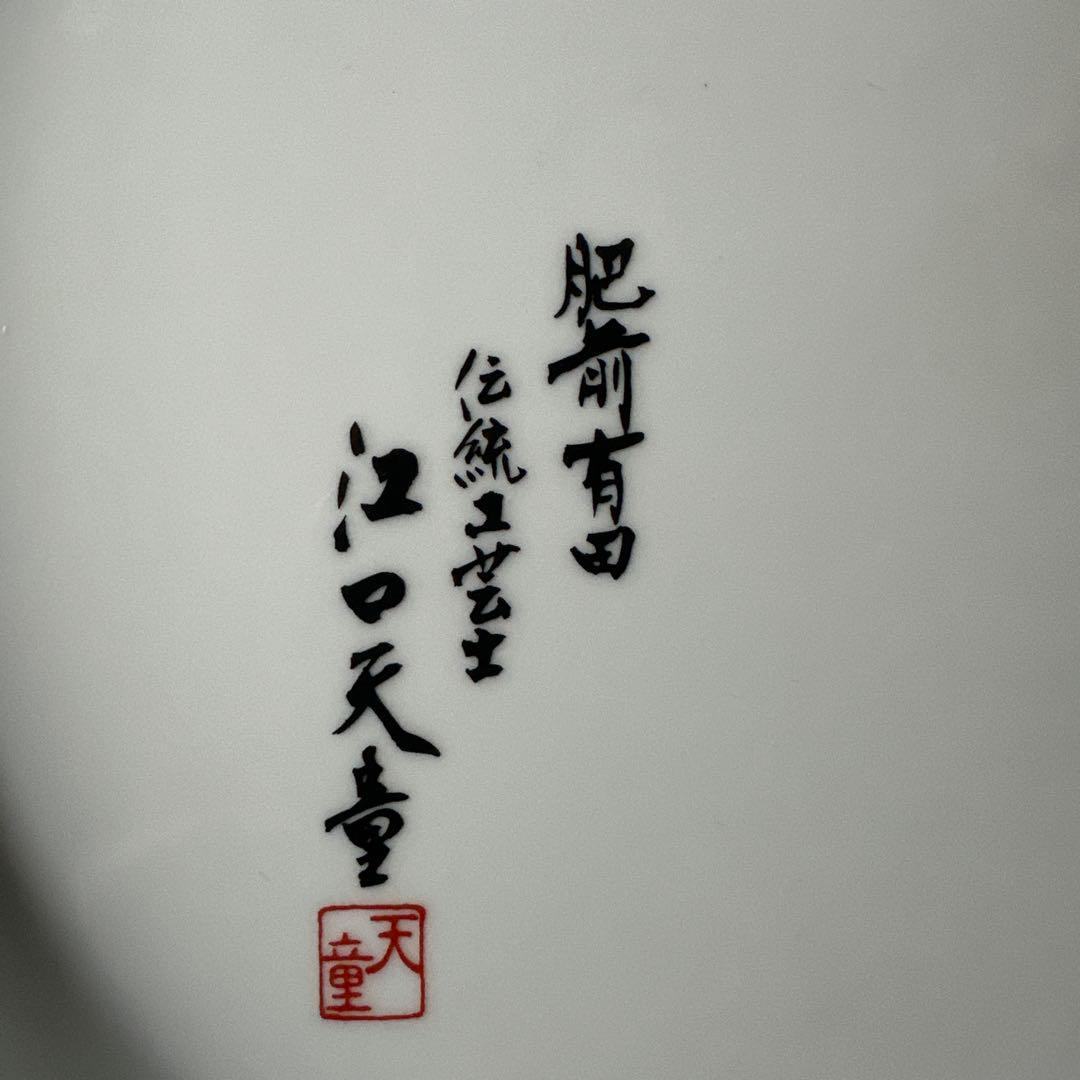 肥前有田
伝統工芸士
江口天童
天童